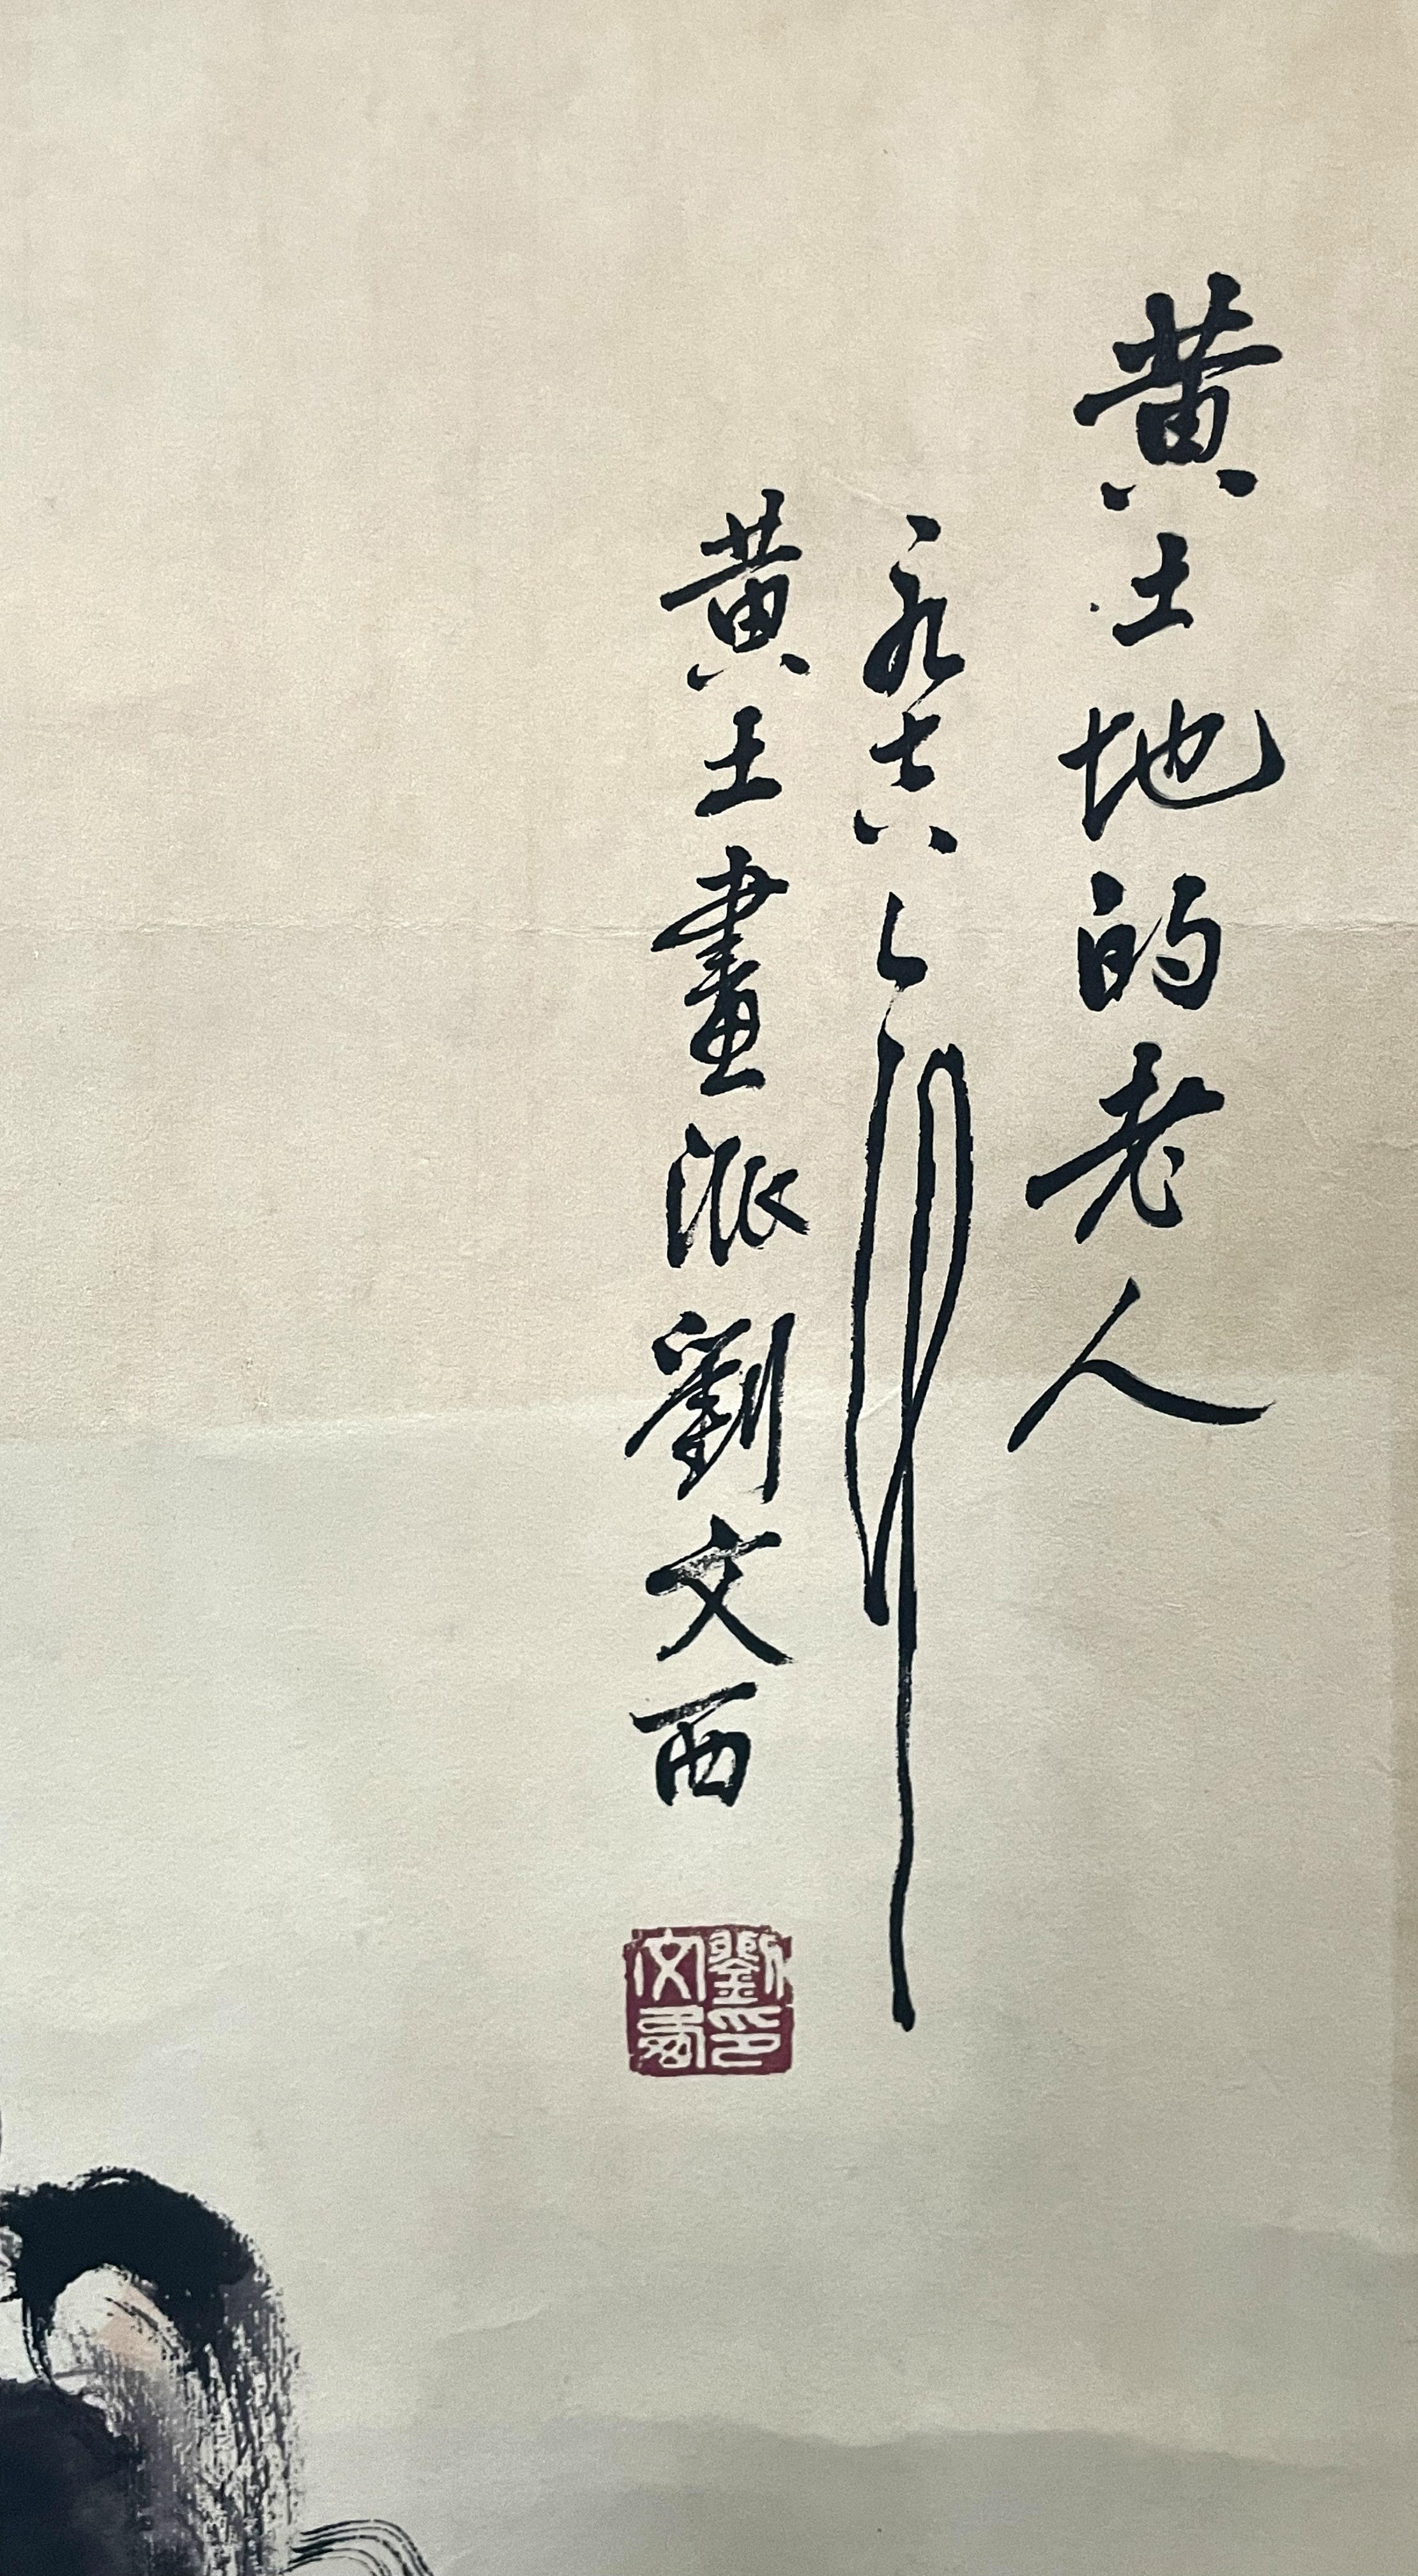 黄土地的老人
黄土畫派劉文西
劉印文西